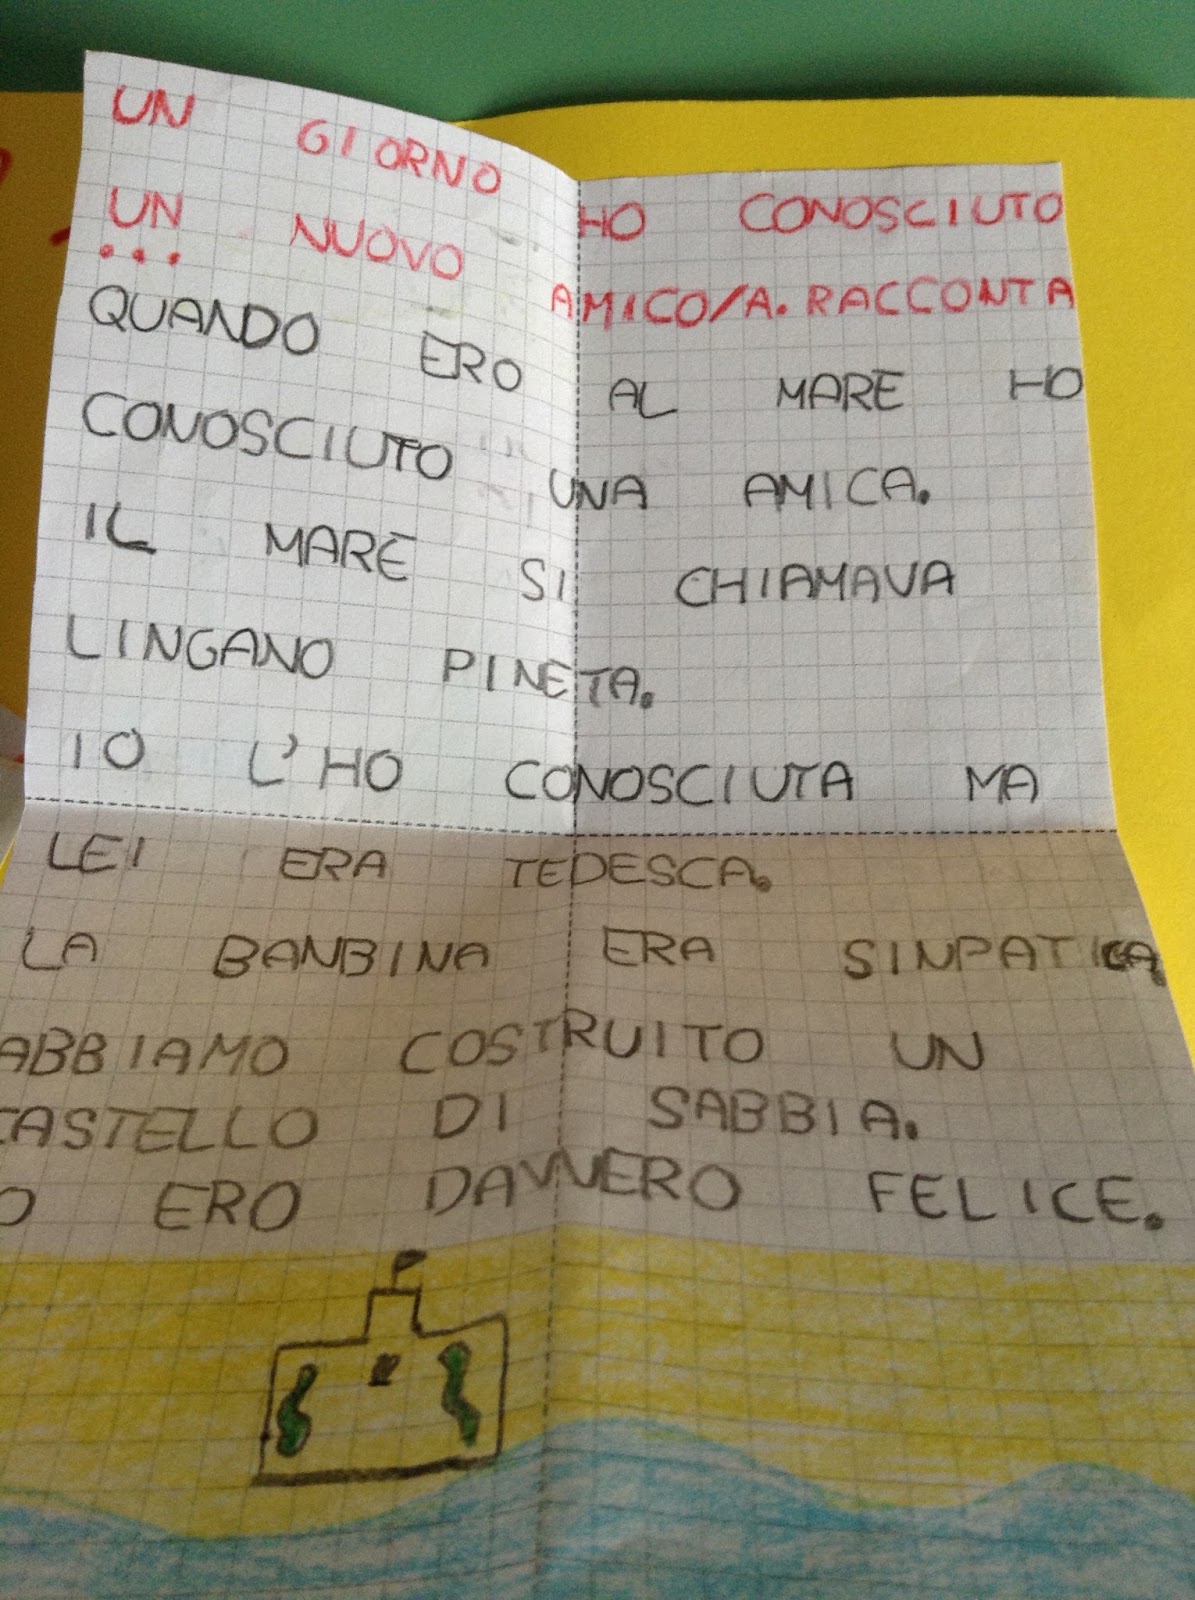 UN GIORNO HO CONOSCIUTO
UN NUOVO AMICO/A. RACCONTA
...
QUANDO ERO AL MARE HO
CONOSCIUTO UNA AMICA.
IL MARE SI CHIAMAVA
LINGANO PINETA.
IO L'HO CONOSCIUTA MA
LEI ERA TEDESCA.
LA BANBINA ERA SINPATICA.
ABBIAMO COSTRUITO UN
CASTELLO DI SABBIA.
O ERO DAVVERO FELICE.